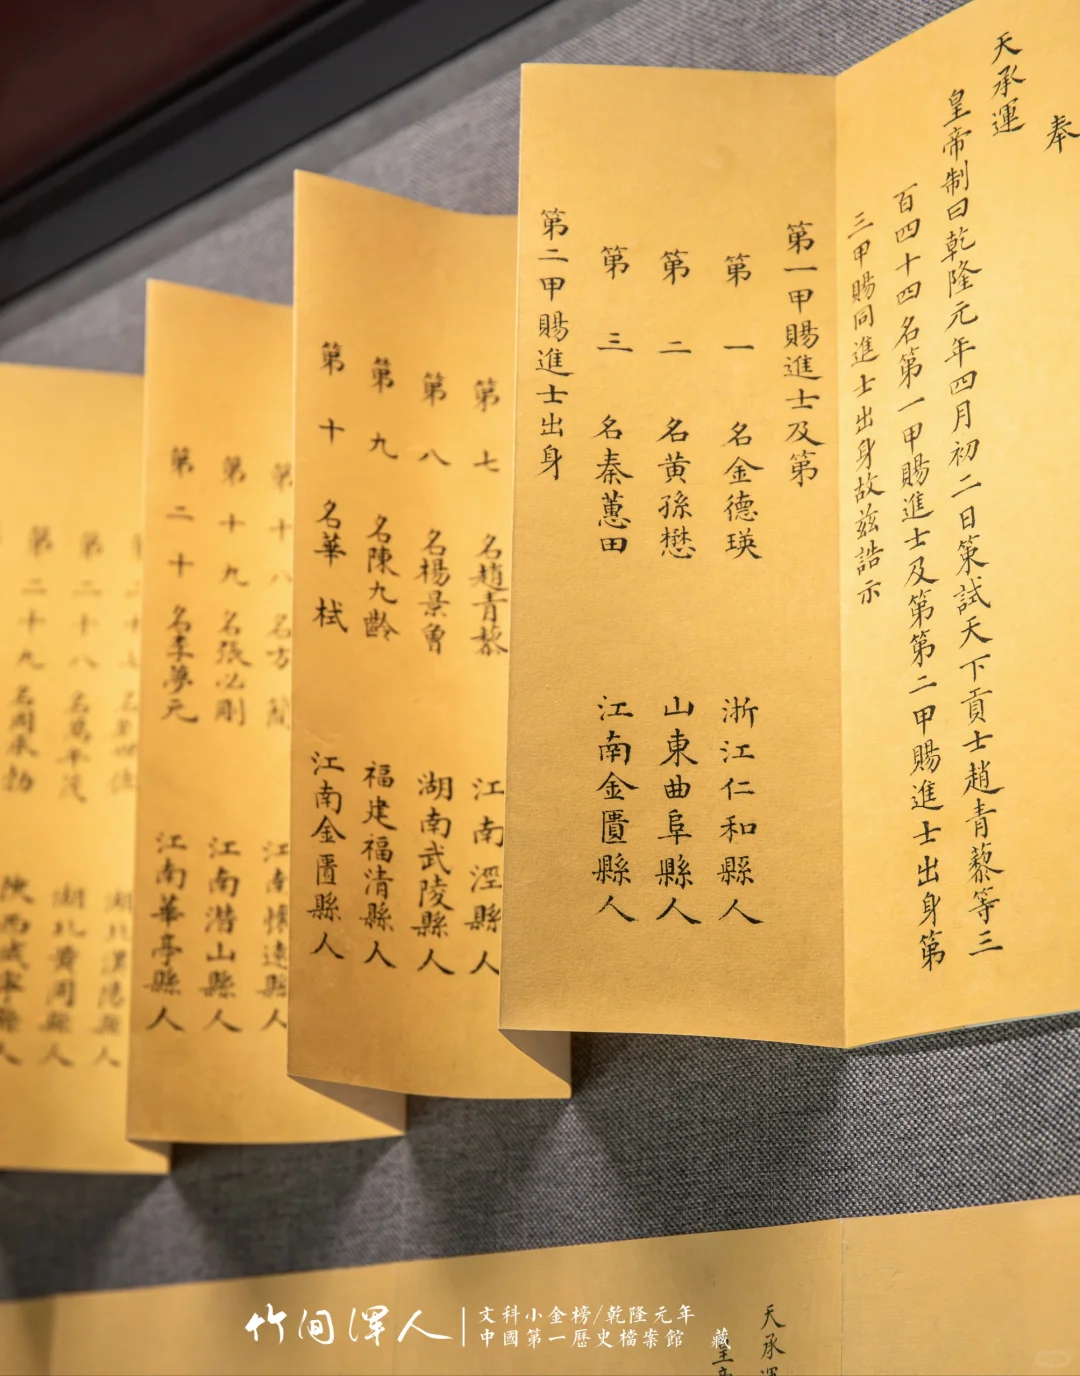 奉
天承運
皇帝制曰乾隆元年四月初二日策試天下貢士趙青藜等三
百四十四名第一甲賜進士及第第二甲賜進士出身第
三甲賜同進士出身故茲誥示
第一甲賜進士及第
第一名金德瑛 浙江仁和縣人
第二名黃孫懋 山東曲阜縣人
第三名秦蕙田 江南金匱縣人
第二甲賜進士出身
第七名趙青藜 江南涇縣人
第八名楊景曾 湖南武陵縣人
第九名陳九齡 福建福清縣人
第十名華栻 江南金匱縣人
第十八名方簡 江南懷遠縣人
第十九名張必剛 江南潛山縣人
第二十名李夢元 江南華亭縣人
第二十 湖北漢陽縣人
第二十八名萬年茂 湖北黃岡縣人
第二十九名周承勃 陝西咸寧縣人
天承運
皇帝
竹間渾人
文科小金榜/乾隆元年
中國第一歷史檔案館 藏